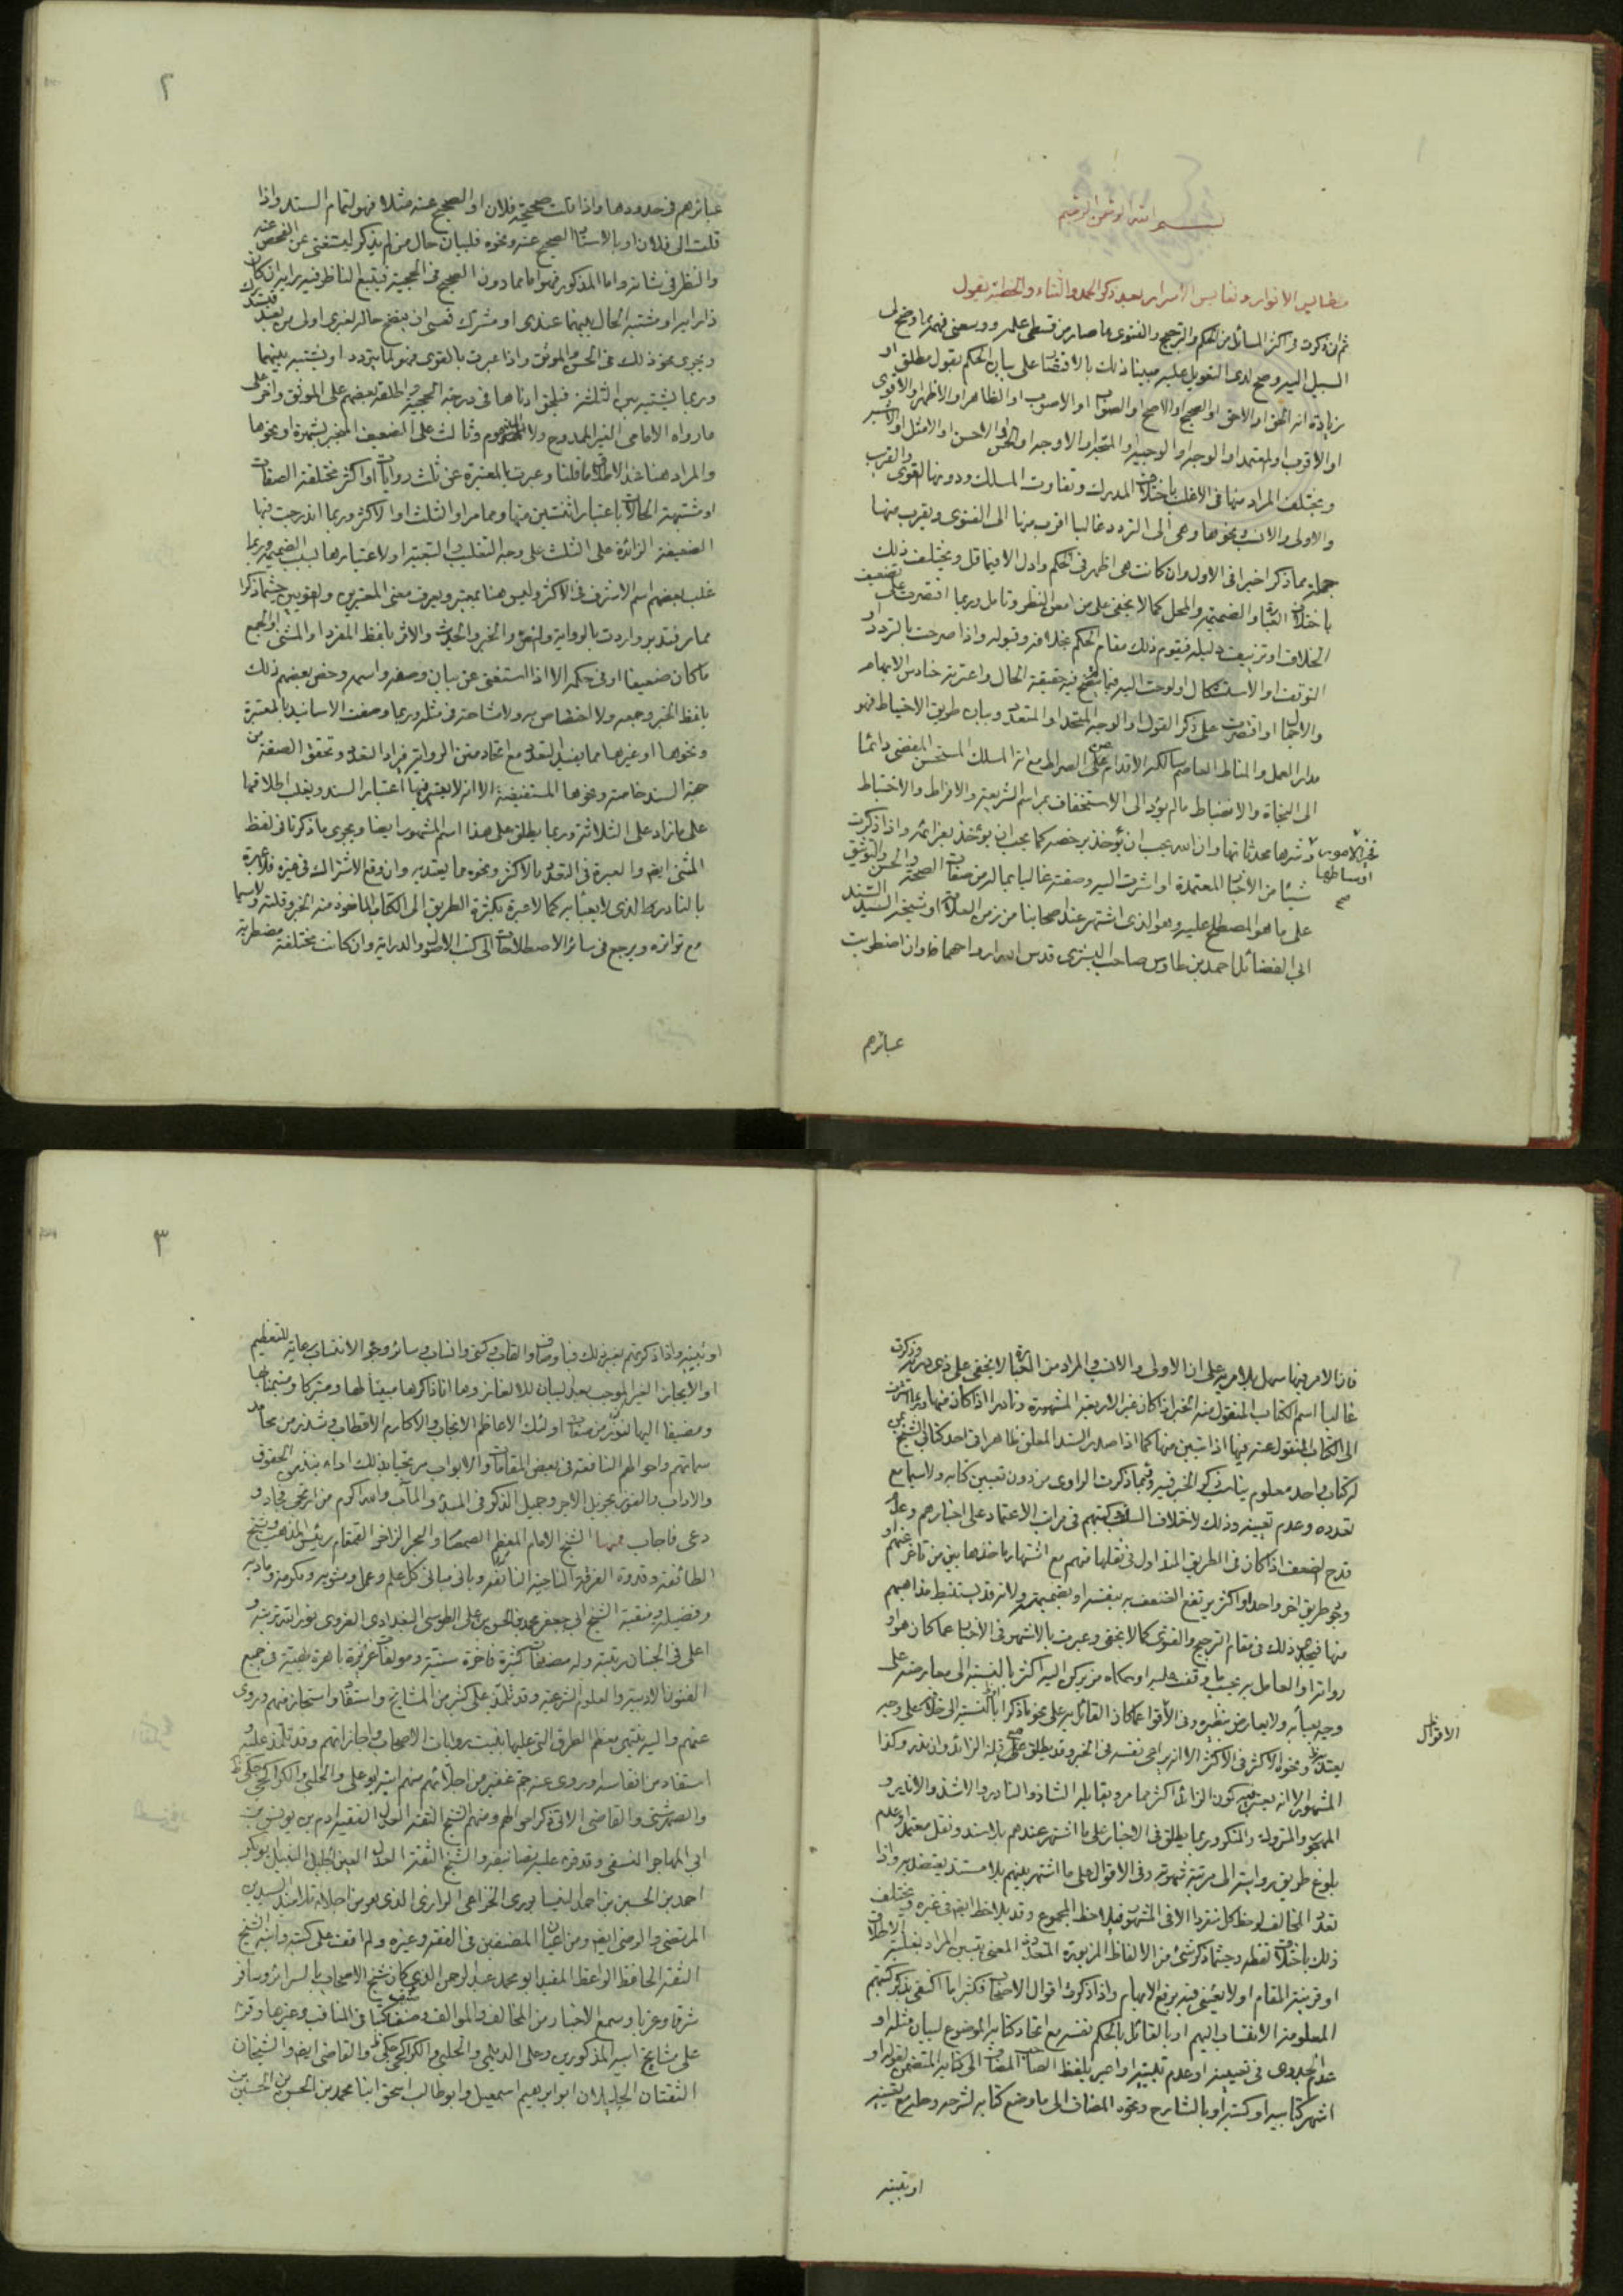 بسم الله الرحمن الرحيم
مطالير الانوار ونفايس الاسرار بعد ذكر الحمد والثناء والخطبة يقول
ثم انى ذكرت فى اكثر المسائل من الحكم والترجيح والفتوى ما صار من قسطى علمه ووسعنى فهمه مما وضح لى
السبيل اليه وصح لدى التعويل عليه مبينا ذلك بالاقتصار على بيان الحكم بقول مطلق او
بزيادة انه الحق او الاحق او الصحيح او الاصح او الصواب او الاصوب او الظاهر او الاظهر او الاقوى
او الاقرب او المعتمد او الوجه او الوجيه او المتجه او الاوجه او الحسن او الاحسن او الامثل او الاشبه
ويختلف المراد منها فى الاغلب باختلاف المدرك وتفاوت المسلك ودونها القوى والقرب
والاولى والانسب ونحوها وهى الى التردد غالبا اقرب منها الى الفتوى ويقرب منها
جملة مما ذكر اخيرا فى الاول وان كانت هى اظهر فى الحكم وادل الا فيما قل ويختلف ذلك
باختلاف العبارة والضميمة والمحل كما لا يخفى على من امعن النظر وتامل وربما اقتصرت على تضعيف
الخلاف او تزييف دليله فيقوم ذلك مقام الحكم بخلافه وقبوله واذا صرحت بالتردد او
التوقف او الاستشكال او لوحت اليه فيما لم يتضح فيه حقيقة الحال واعترته حنادس الابهام
والاجمال او اقتصرت على ذكر القول او الوجه المتحد او المتعدد وبيان طريق الاحتياط فهو
مدار العمل والمناط العاصم سالكه الاقدام على الصراط مع انه المسلك المستحسن المفضى دائما
الى النجاة والانضباط ما لم يؤد الى الاستخفاف بمراسم الشريعة والافراط والاختباط
فخير الامور اوساطها وشرها محدثاتها وان الله يحب ان يؤخذ برخصه كما يحب ان يؤخذ بعزائمه واذا ذكرت
شيئا من الاخبار المعتمدة او اشرت اليه وصفته غالبا بماله من صفات الصحة والحسن والتوثيق
على ما هو المصطلح عليه وهو الذى اشتهر عند اصحابنا من زمن العلامة او شيخه السيد السند
ابى الفضائل احمد بن طاوس صاحب البشرى قدس الله ارواحهما وان اضطربت
عبائرهم
٢
عبائرهم فى حدودها واذا قلت صحيحة فلان او الصحيح عنه مثلا فهو لتمام السند واذا
قلت الى فلان او بالاسناد الصحيح عنه ونحوه فلبيان حال من لم يذكر ليستغنى عن الفحص عنه
والنظر فى شانه واما المذكور فهو اما مما دون الصحيح فى الحجية فيتبع الناظر فيه رايه ان كان
ذا راى او مشتبه الحال بينهما عندى او مشترك فعسى ان يتضح حاله لغيرى او لى من بعد فيستدرك
ويجرى نحو ذلك فى الحسن والموثق واذا عبرت بالقوى فهو لما يتردد او يشتبه بينهما
وربما يشتبه بين الثلثة فيلحق ادناها فى درجة الحجية واطلقه بعضهم على الموثق واخر على
ما رواه الامامى الغير الممدوح ولا المذموم وثالث على الضعيف المنجبر بشهرة او نحوها
والمراد هنا عند الاطلاق ما قلنا وعبرت بالمعتبرة عن ثلث روايات او اكثر مختلفة الصفات
او مشتبهة الحالات باعتبار اثنتين منها ومما مر او الثلث او الاكثر وربما اندرجت فيها
الضعيفة الزائدة على الثلث على وجه التغليب والتبعية او لاعتبارها لسبب الضميمة وربما
غلب بعضهم اسم الاشرف فى الاكثر وليس هنا بمعتبر ويعرف معنى المعتبرين والقويين حيثما ذكرا
مما مر فتدبر واردت بالرواية والنص والخبر والحديث والاثر بلفظ المفرد او المثنى او الجمع
ما كان ضعيفا او فى حكمه الا اذا استغنى عن بيان وصفه واسمه وخص بعضهم ذلك
بلفظ الخبر وجمعه ولا اختصاص به ولا مشاحة فى مثله وربما وصفت الاسانيد بالمعتبرة
ونحوها او غيرها مما يفيد التعدد مع اتحاد متن الرواية فيراد التعدد وتحقق الصفة من
جهة السند خاصة ونحوها المستفيضة الا انه لا يعتبر فيها اعتبار السند ويغلب اطلاقها
على ما زاد على الثلاثة وربما يطلق على هذا اسم المشهور ايضا ويجرى ما ذكرنا فى لفظ
المثنى ايضا والعبرة فى التعدد بالاكثر ونحوه مما يعتد به وان وقع الاشتراك فى غيره فلا عبرة
بالنادر الذى لا يعبأ به كما لا عبرة بكثرة الطريق الى الكتاب الماخوذ منه الخبر وقلته ولا سيما
مع تواتره ويرجع فى سائر الاصطلاحات الى كتب الاصول والدراية وان كانت مختلفة مضطربة
فان الامر فيها سهل بلا مرية على ان الاولى والانسب والمراد من العبارة لا يخفى على ذى دربة وذكرت
غالبا اسم الكتاب المنقول منه الخبر اذا كان غير الاربعة المشهورة ونادرا اذا كان منها وربما اشرت
الى الكتاب المنقول عنه فيها اذا تبين منها كما اذا صدر السند المعلق ظاهرا فى احد كتابى الشيخ بمن
له كتاب واحد معلوم يناسب ذكر الخبر فيه وربما ذكرت الراوى من دون تعيين كتابه ولا سيما مع
تعدده وعدم تعيينه وذلك لاختلاف السلف وكتبهم فى مراتب الاعتماد على اخبارهم وعدم
قدح الضعف اذا كان فى الطريق المتداول فى نقلها منهم مع اشتهار ماخذها بين من تاخر عنهم او
وجود طريق اخر واحد او اكثر يرتفع الضعف به بنفسه او بضميمته ولانه قد يستنبط مذاهبهم
منها فيجعل ذلك فى مقام الترجيح والفتوى كما لا يخفى وعبرت بالاشهر فى الاخبار عما كان هو او
رواته او العامل به بحسب ما وقفت عليه او حكاه من يركن اليه اكثر بالنسبة الى معارضته على
وجه يعبأ به ولا يعارض بنظيره وفى الاقوال عما كان القائل به على نحو ما ذكر اكثر بالنسبة الى خلافه على وجه
الاقوال
يعتد به ونحوه الاكثر فى الاكثر الا انه يراعى نفسه فى الخبر وقد يطلق على قلة الزائد وان ندر وكذا
المشهور الا انه يعتبر فيه كون الزائد اكثر مما مر ويقابله الشاذ والنادر والاشذ والاندر و
المهجور والمتروك والمنكور وربما يطلق فى الاخبار على ما اشتهر عندهم بلا سند ونقل معتمد او علم
بلوغ طريق روايته الى مرتبة شهرته وفى الاقوال على ما اشتهر بينهم بلا مستند يعتضد به واذا
تعدد المخالف لوحظ كل منفردا الا فى المشهور فيلاحظ المجموع وقد يلاحظ ايضا فى غيره ويختلف
ذلك باختلاف لفظه وحيثما ذكر شئ من الالفاظ المزبورة المتعددة المعنى يتبين المراد بغلبة الاطلاق
او قرينة المقام او لا يعينى فيه برفع الابهام واذا ذكرت اقوال الاصحاب فكثيرا ما اكتفى بذكر كتبهم
المعلومة الانتساب اليهم او بالقائل بالحكم نفسه مع اتحاد كتابه الموضوع لبيان مثله او
عدم الجدوى فى تعيينه او عدم تبينه او اعبر بلفظ الصاحب المضاف الى كتابه المتضمن لقوله او
اشهر كتابيه او كتبه او بالشارح ونحوه المضاف الى ما وضع كتابه لشرحه وحله مع تعيينه
او تعيينه
٣
او تبينه واذا ذكرتهم بغير ذلك فباوصاف والقاب وكنى وانساب وسائر وجوه الانتساب رعاية للتعظيم
او الايجاز الغير الموجب بعد البيان للالغاز وها انا ذاكرها مبينا لها ومتبركا ومتيمنا بها
ومضيفا اليها لنور من مناقب اولئك الاعاظم الانجاب والاكارم الاقطاب وشذر من محامد
سماتهم واحوالهم النافعة فى بعض المقامات والابواب مريدا بذلك اداء بعض الحقوق
والاداب والفوز بجزيل الاجر وجميل الذكر فى المبدء والمآب والله اكرم من ارتجى فجاد و
دعى فاجاب فمنها الشيخ الامام المعظم الصمصام والبحر الزاخر القمقام رئيس المذهب وشيخ
الطائفة وقدوة الفرقة الناجية الفائقة وبانى مبانى كل علم وعمل ومثوبة ومكرمة ومادبة
وفضيلة ومنقبة الشيخ ابى جعفر محمد بن الحسن بن على الطوسى البغدادى الغروى نور الله تربته و
اعلى فى الجنان رتبته وله مصنفات كثيرة فاخرة سنية ومولفات غزيرة باهرة بهية فى جميع
الفنون الادبية والعلوم الشرعية وقد تلمذ على كثير من المشايخ واستفاد واستجاز منهم وروى
عنهم واليه ينتهى معظم الطرق التى عليها بنيت روايات الاصحاب واجازاتهم وقد تلمذ عليه و
استفاد من انفاسه وروى عنه جم غفير من اجلائهم منهم ابنه ابو على والحلبى والكراجكى
والصهرشتى والقاضى الاتى ذكر احوالهم ومنهم الشيخ الثقة العدل الفقيه ادم بن يونس بن
ابى المهاجر النسفى وقد قرء عليه تصانيفه والشيخ الثقة العدل العين الجليل النبيل ابو بكر
احمد بن الحسين بن احمد النيسابورى الخزاعى الرازى الذى هو من اجلاء تلامذة السيدين
المرتضى والرضى ايضا ومن اعيان المصنفين فى الفقه وغيره ولم اقف على كتبه وابنه الشيخ
الثقة الحافظ الواعظ المفيد ابو محمد عبد الرحمن الذى كان شيخ الاصحاب بالرى وسافر
شرقا وغربا وسمع الاخبار من المخالف والموالف وصنف كتبا فى المناقب وغيرها وقرء
على مشايخ ابيه المذكورين وعلى الديلمى والحلبى والكراجكى والقاضى ايضا والشيخان
الثقتان الجليلان ابو ابراهيم اسمعيل وابو طالب اسحق ابنا محمد بن الحسن بن الحسين بن